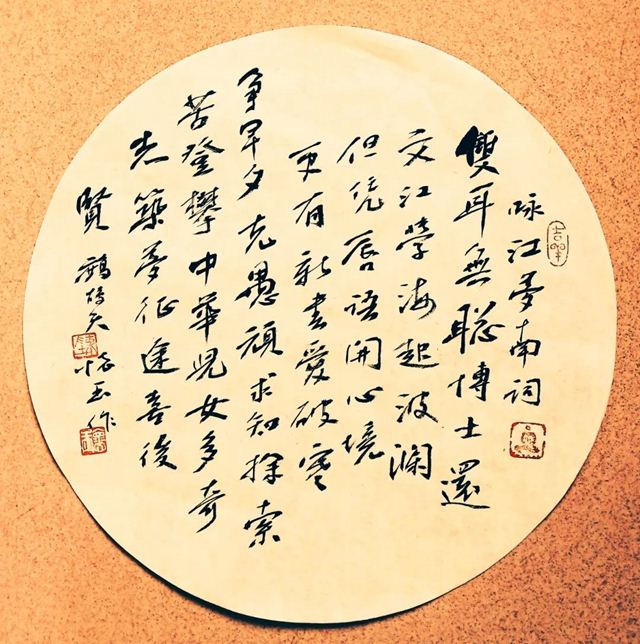 咏江夢南词
雙耳無聪博士還
文江學海起波澜
但凭唇語開心境
更有新書愛破寒
争早夕克愚頑求知探索
苦登攀中華児女多奇
志築夢征途喜後
賢 鹧鸪天 玉作